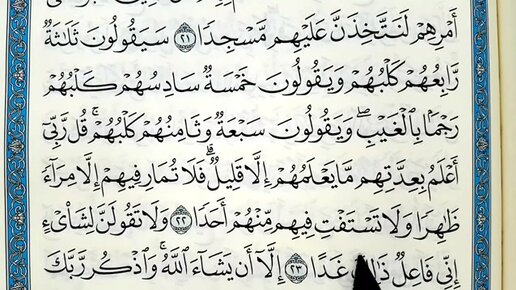 أَمْرِهِمْ لَنَتَّخِذَنَّ عَلَيْهِم مَّسْجِدًا ٢١ سَيَقُولُونَ ثَلَٰثَةٌ
رَّابِعُهُمْ كَلْبُهُمْ وَيَقُولُونَ خَمْسَةٌ سَادِسُهُمْ كَلْبُهُمْ
رَجْمًۢا بِٱلْغَيْبِ ۖ وَيَقُولُونَ سَبْعَةٌ وَثَامِنُهُمْ كَلْبُهُمْ ۚ قُل رَّبِّىٓ
أَعْلَمُ بِعِدَّتِهِم مَّا يَعْلَمُهُمْ إِلَّا قَلِيلٌ ۗ فَلَا تُمَارِ فِيهِمْ إِلَّا مِرَآءً
ظَٰهِرًا وَلَا تَسْتَفْتِ فِيهِم مِّنْهُمْ أَحَدًا ٢٢ وَلَا تَقُولَنَّ لِشَا۟ىْءٍ
إِنِّى فَاعِلٌ ذَٰلِكَ غَدًا ٢٣ إِلَّآ أَن يَشَآءَ ٱللَّهُ ۚ وَٱذْكُر رَّبَّكَ